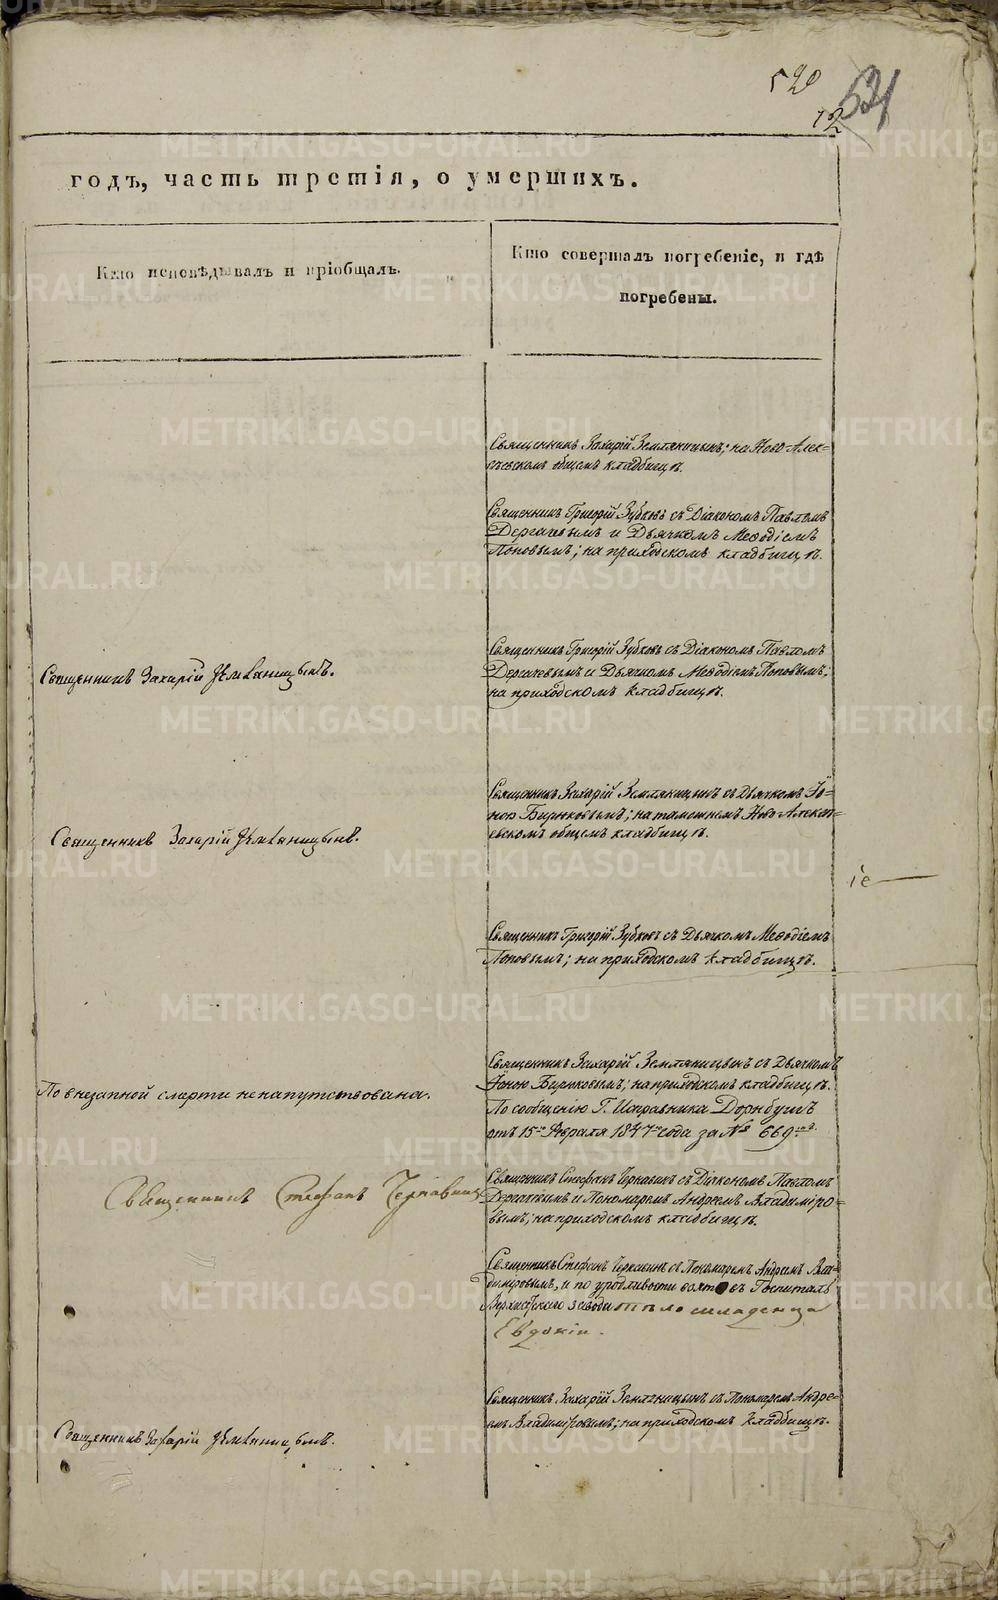 520
521
12
годъ, часть третія, о умершихъ.
Кто исповѣдывалъ и пріобщалъ.
Кто совершалъ погребеніе, и гдѣ
погребены.
Священникъ Захарій Земляницынъ; на Ново-Алек-
сѣевскомъ общемъ кладбищѣ.
Священникъ Григорій Зубковъ съ Діакономъ Павломъ
Дергачевымъ и Дьячкомъ Меѳодіемъ
Поповымъ; на приходскомъ кладбищѣ.
Священникъ Захарій Земляницынъ.
Священникъ Григорій Зубковъ съ Діакономъ Павломъ
Дергачевымъ и Дьячкомъ Меѳодіемъ Поповымъ;
на приходскомъ кладбищѣ.
Священникъ Захарій Земляницынъ.
Священникъ Захарій Земляницынъ съ Дьячкомъ Іо-
ною Бирюковымъ; на тамошнемъ Ново Алексѣ-
евскомъ общемъ кладбищѣ.
Священникъ Григорій Зубковъ съ Дьячкомъ Меѳодіемъ
Поповымъ; на приходскомъ кладбищѣ.
По внезапной смерти не напутствована.
Священникъ Захарій Земляницынъ съ Дьячкомъ
Іоною Бирюковымъ; на приходскомъ кладбищѣ.
По сообщенію Г. Исправника Дорнбушъ
отъ 15го Февраля 1847го года за № 669мъ.
Священникъ Стефанъ Чернавинъ
Священникъ Стефанъ Чернавинъ съ Діакономъ Павломъ
Дергачевымъ и Пономаремъ Андреемъ Владиміро-
вымъ; на приходскомъ кладбищѣ.
Священникъ Стефанъ Чернавинъ съ Пономаремъ Андреемъ Вла-
диміровымъ, и по уродливости взято въ Госпиталь
Верхисетскаго завода тѣло младенца
Евдокіи.
Священникъ Захарій Земляницынъ.
Священникъ Захарій Земляницынъ съ Пономаремъ Андре-
емъ Владиміровымъ; на приходскомъ кладбищѣ.
METRIKI.GASO-URAL.RU